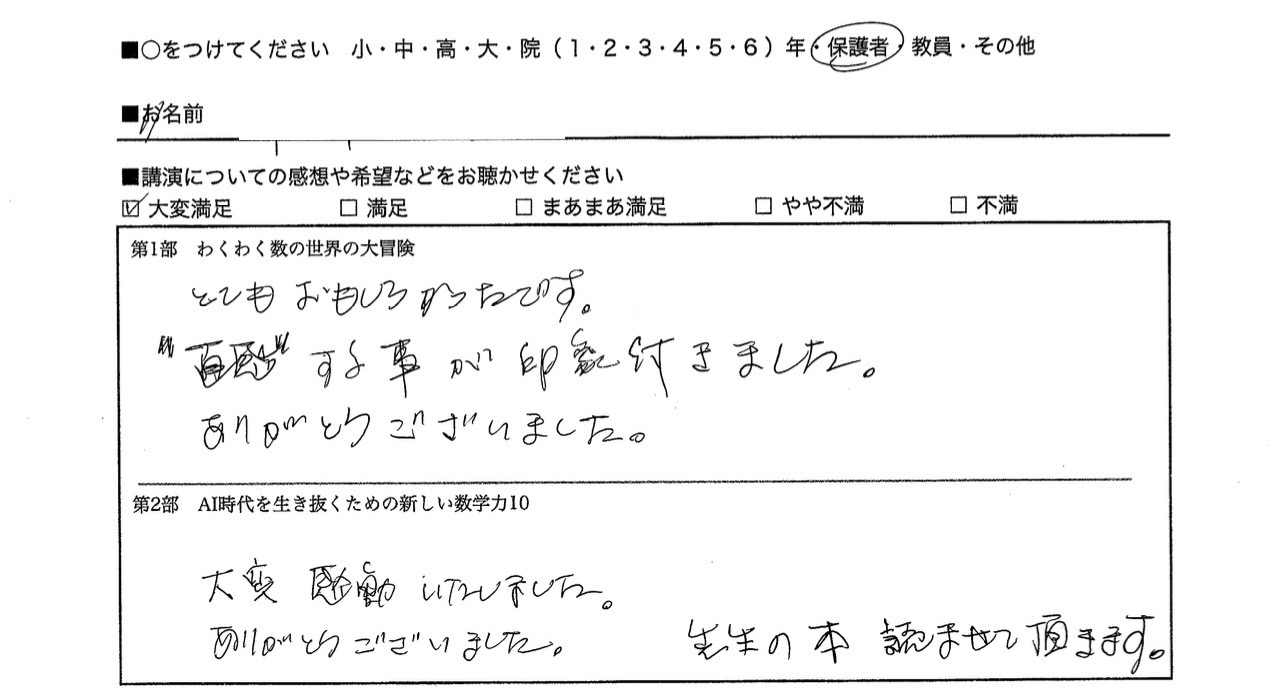 ■○をつけてください 小・中・高・大・院（1・2・3・4・5・6）年・保護者・教員・その他
■お名前
■講演についての感想や希望などをお聴かせください
☑ 大変満足 □ 満足 □ まあまあ満足 □ やや不満 □ 不満
第1部 わくわく数の世界の大冒険
とてもおもしろかったです。
"直感"する事が印象付きました。
ありがとうございました。
第2部 AI時代を生き抜くための新しい数学力10
大変感動いたしました。
ありがとうございました。 先生の本 読ませて頂きます。